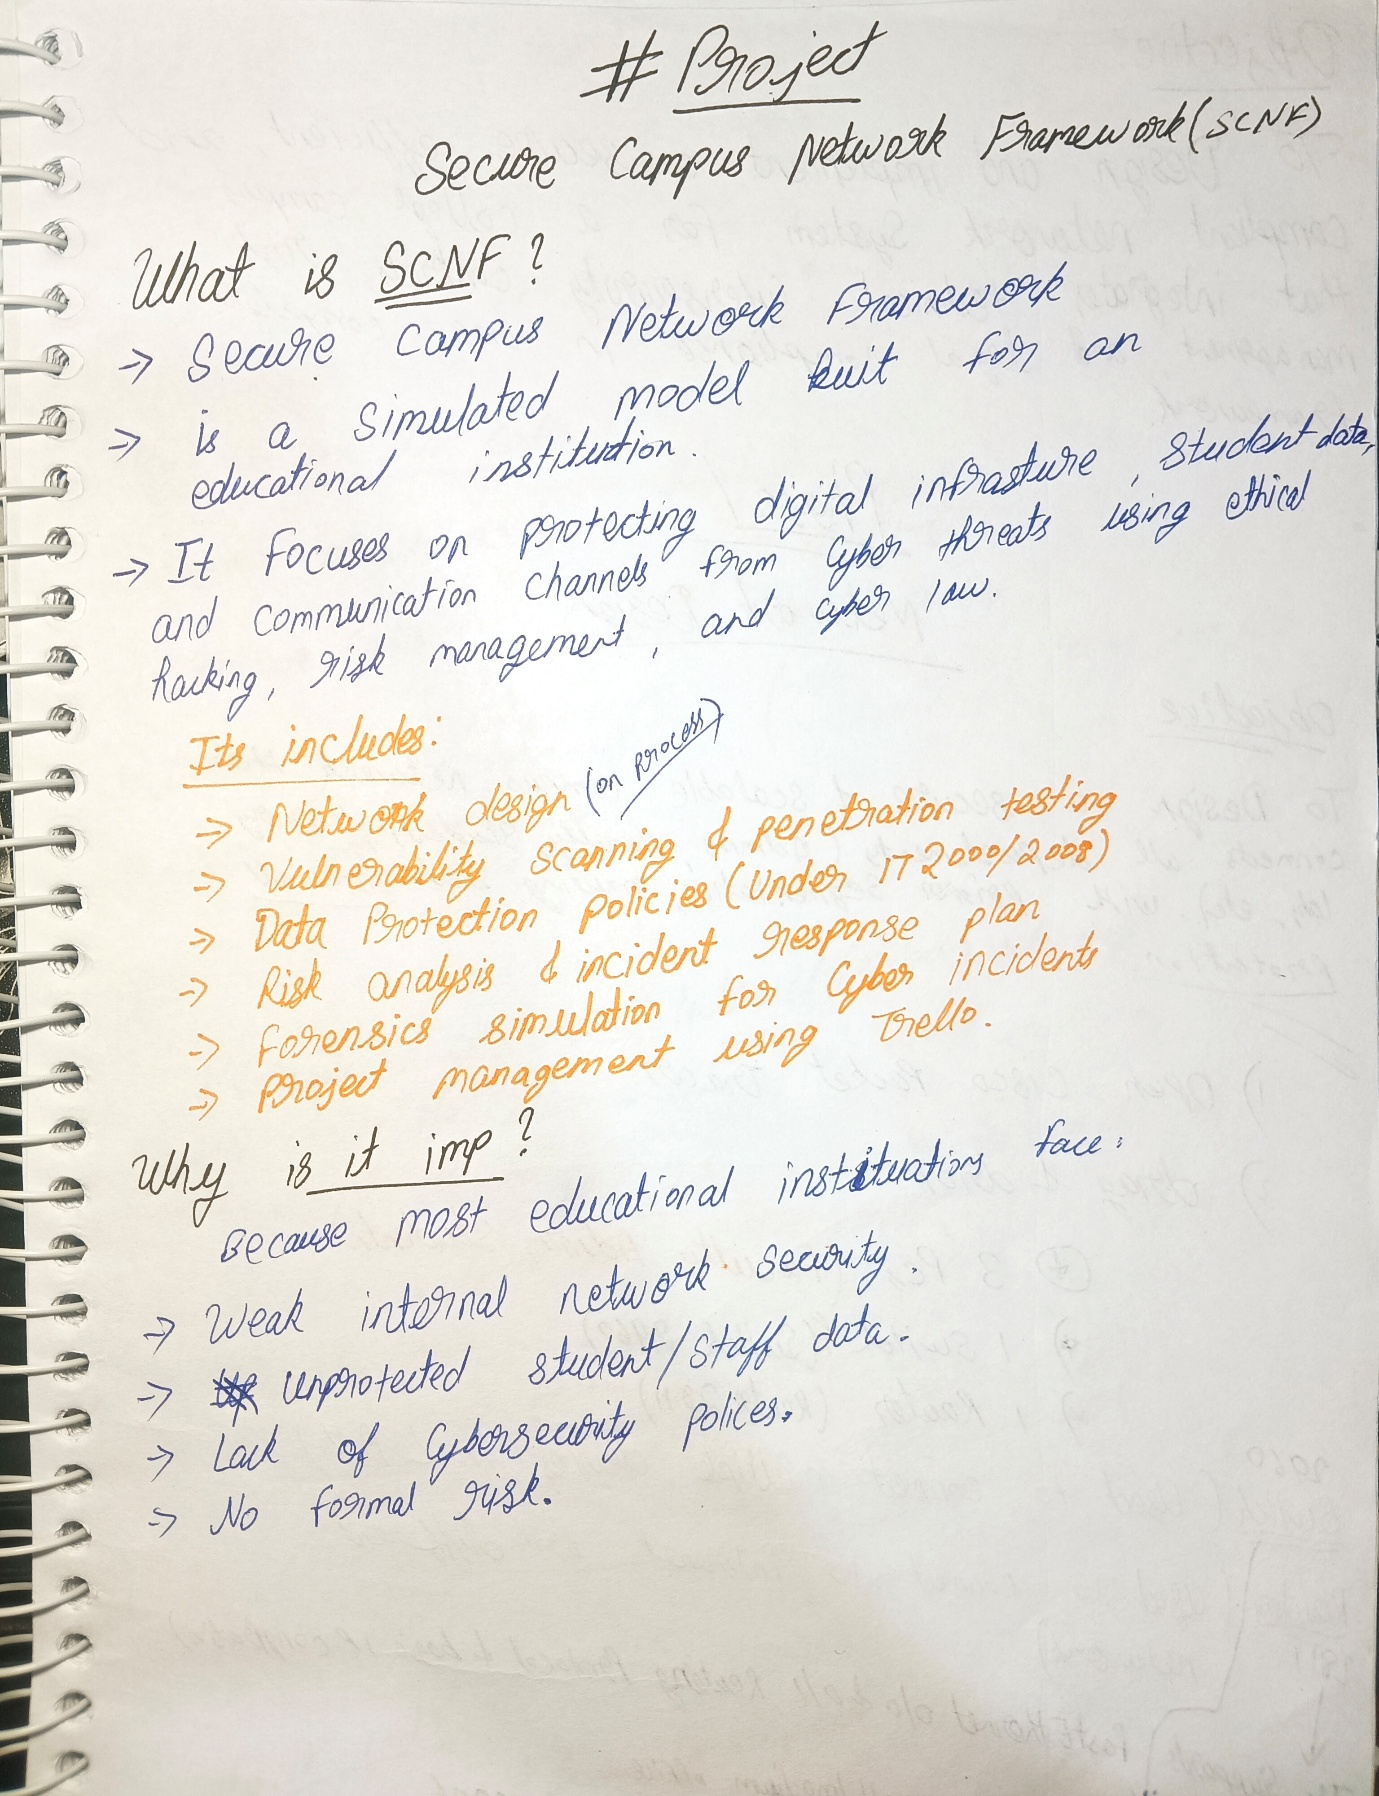 # Project
Secure Campus Network Framework (SCNF)
What is SCNF?
→ Secure Campus Network Framework
→ is a simulated model buit for an
educational institution.
→ It Focuses on protecting digital infrasture, student data,
and communication channels from Cyber threats using ethical
hacking, risk management, and cyber law.
Its includes:
→ Network design (on process)
→ Vulnerability scanning & penetration testing
→ Data Protection policies (Under IT 2000/2008)
→ Risk analysis & incident response plan
→ Forensics simulation for Cyber incidents
→ Project management using Trello.
Why is it imp?
Because most educational instituations face:
→ Weak internal network security.
→ Unprotected student/staff data.
→ Lack of Cybersecurity polices.
→ No formal risk.